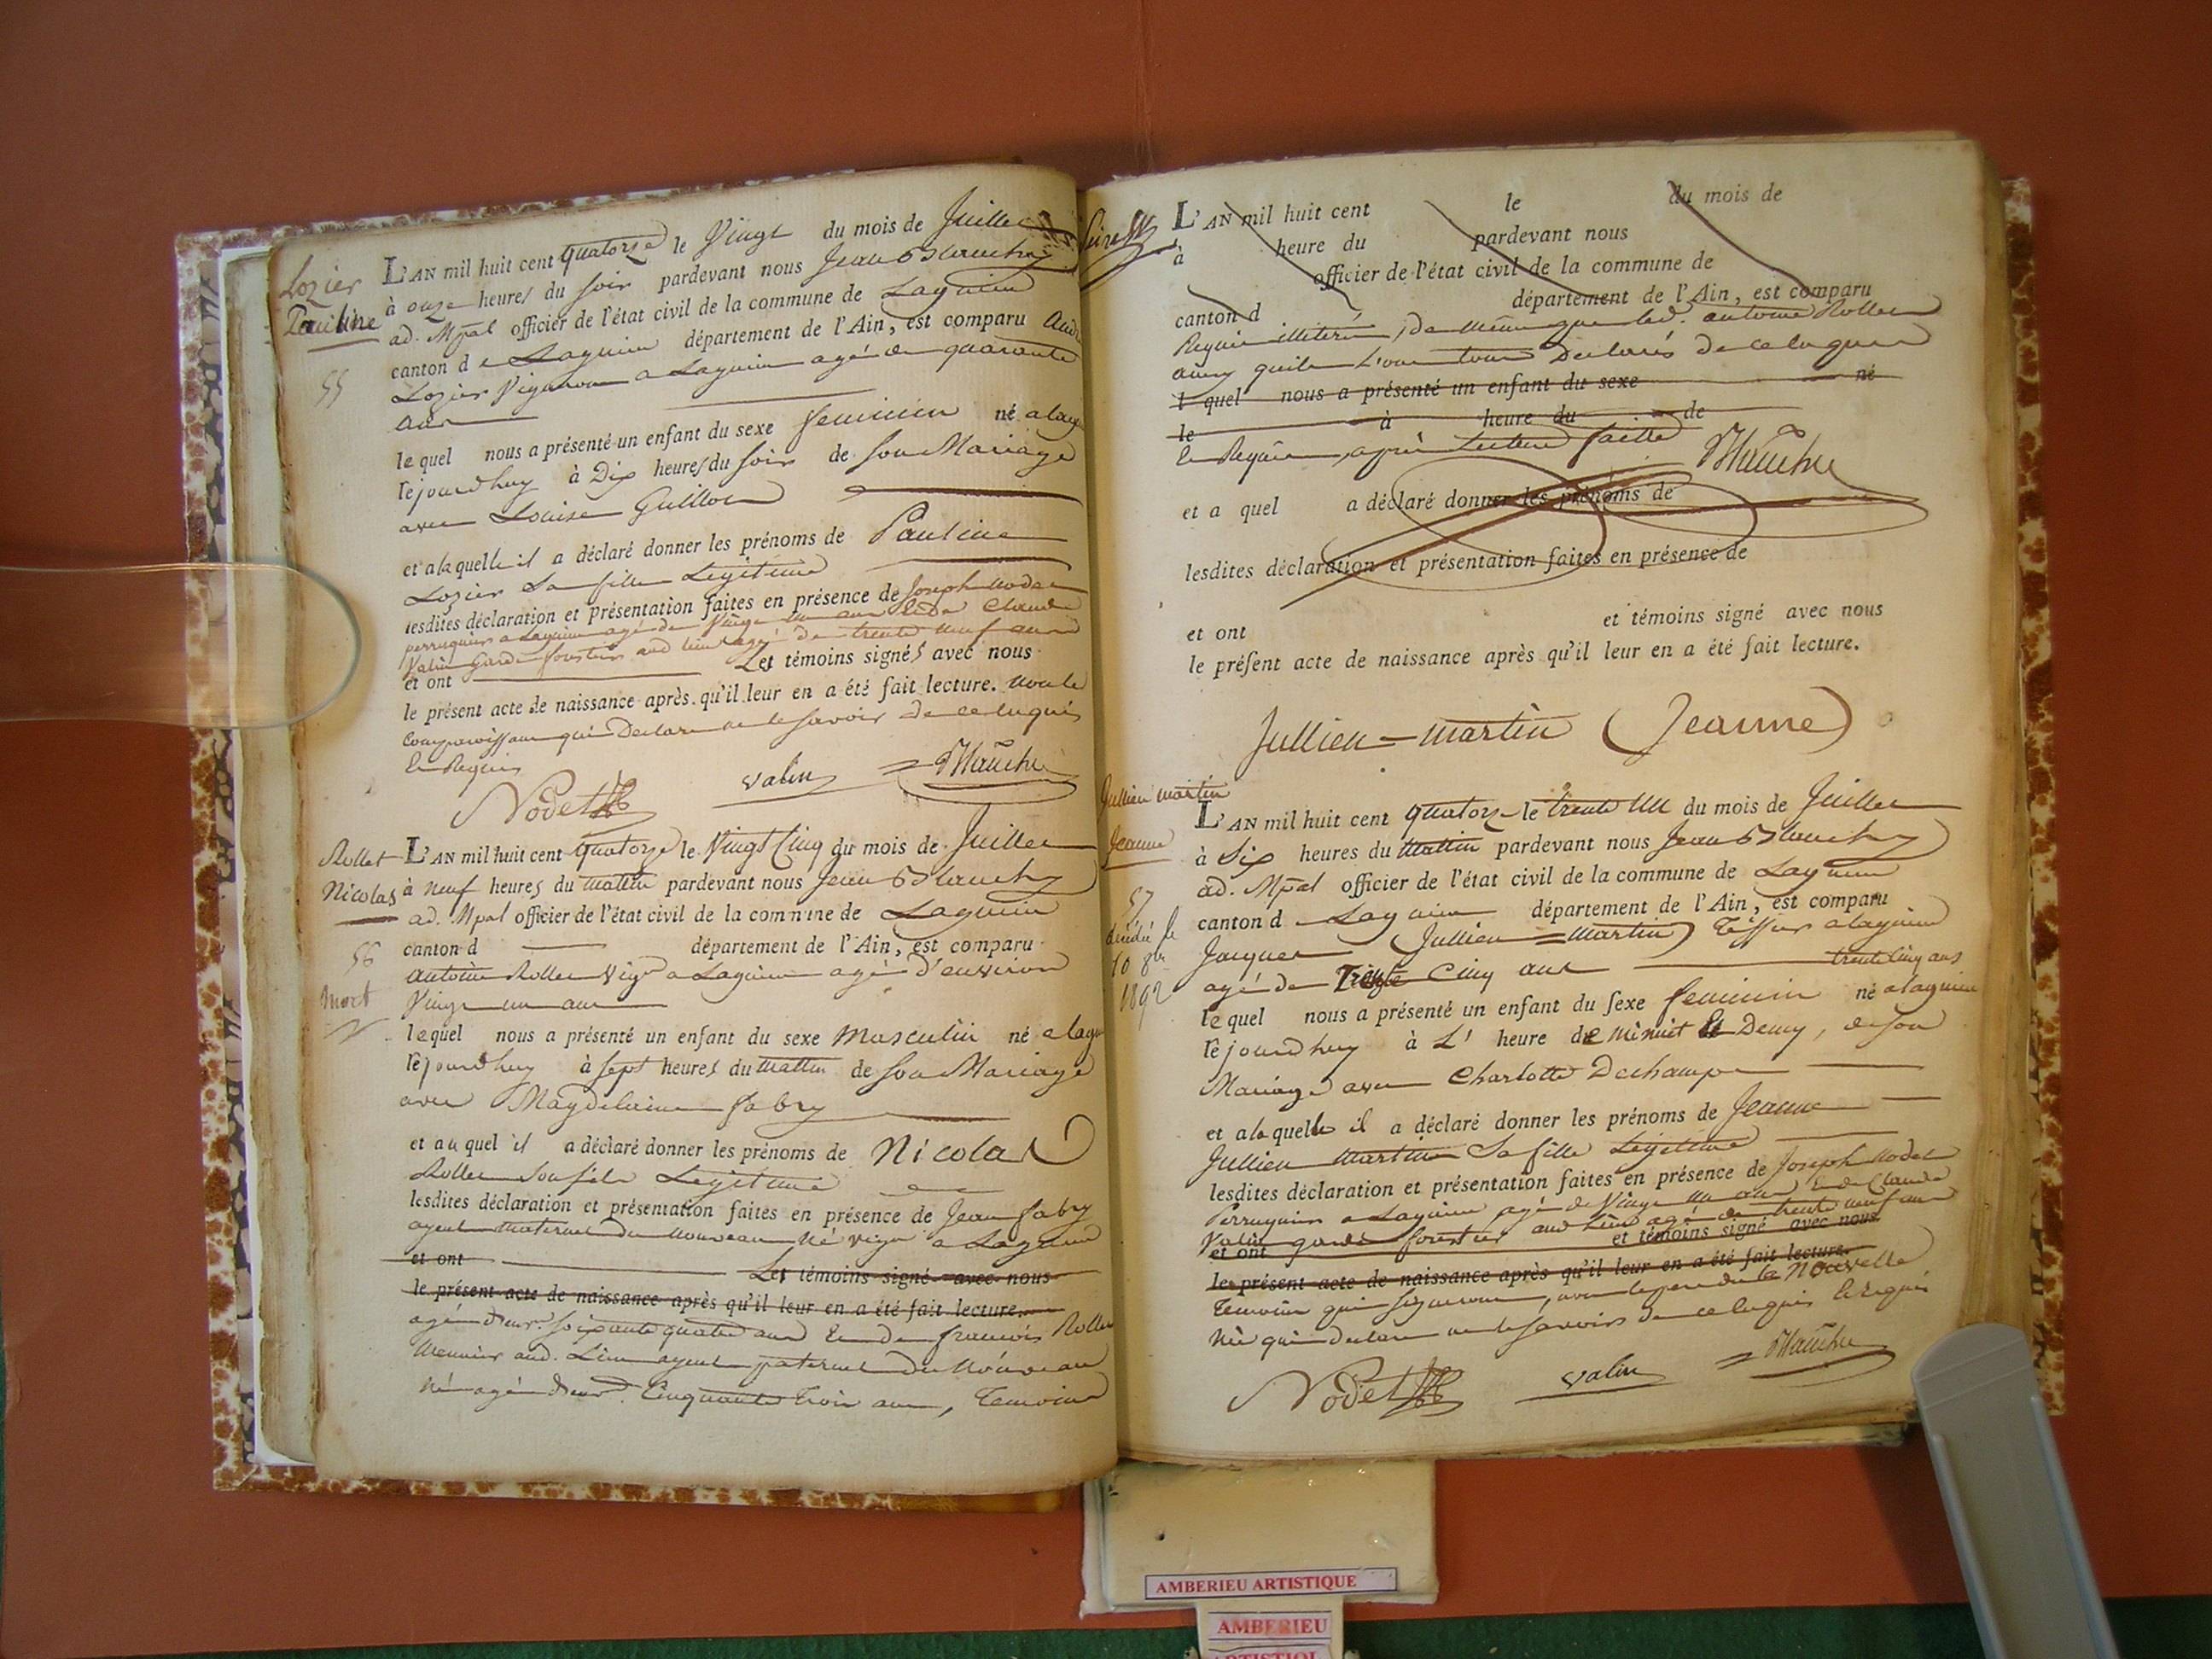 Lozier
Pauline
55
L'AN mil huit cent quatorze le Vingt du mois de Juillet
à onze heures du soir pardevant nous Jean Blanchy
ad. Mpal officier de l'état civil de la commune de Lagnieu
canton de Lagnieu département de l'Ain, est comparu
Lozier Vigneron a Lagnieu agé de quarante
ans
lequel nous a présenté un enfant du sexe feminin né a
cejourdhuy à Dix heures du soir de son Mariage
avec Louise Guillon
et a laquelle il a déclaré donner les prénoms de Pauline
Lozier sa fille Legitime
lesdites déclaration et présentation faites en présence de Joseph Nodet
perruquier a Lagnieu agé de Vingt un ans et de Claude
Valin Garde forestier aud lieu agé de trente neuf ans
et ont Les témoins signés avec nous
le présent acte de naissance après qu'il leur en a été fait lecture. non le
comparoissant qui Declare ne le savoir de ce enquis
et Requis
Nodet valin Blanchy
Rollet
Nicolas
56
mort
L'AN mil huit cent quatorze le Vingt Cinq du mois de Juillet
à neuf heures du mattin pardevant nous Jean Blanchy
ad. Mpal officier de l'état civil de la commune de Lagnieu
canton d département de l'Ain, est comparu
antoine Rollet Vign a Lagnieu agé d'environ
Vingt un ans
lequel nous a présenté un enfant du sexe Masculin né a
cejourdhuy à sept heures du mattin de son Mariage
avec Magdelaine fabry
et auquel il a déclaré donner les prénoms de Nicolas
Rollet son fils Legitime
lesdites déclaration et présentation faites en présence de Jean fabry
ayeul maternel du nouveau né vign a Lagnieu
et ont Les témoins signé avec nous
le présent acte de naissance après qu'il leur en a été fait lecture.
agé d'env. soixante quatre ans et de francois Rollet
Meunier aud. Lieu ayeul paternel du Nouveau
né agé d'env. Cinquante trois ans, temoins
L'AN mil huit cent le du mois de
à heure du pardevant nous
officier de l'état civil de la commune de
canton d département de l'Ain, est comparu
Requis, de même que led. antoine Rollet
l quel nous a présenté un enfant du sexe né
le à heure du de
et Requis, après Lecture faitte Blanchy
et a quel a déclaré donner les prénoms de
lesdites déclaration et présentation faites en présence de
et ont et témoins signé avec nous
le présent acte de naissance après qu'il leur en a été fait lecture.
Jullien = martin (Jeanne)
Jullien martin
Jeanne
57
décédée le
10 8bre
1892
L'AN mil huit cent quatorze le trente un du mois de Juillet
à Six heures du mattin pardevant nous Jean Blanchy
ad. Mpal officier de l'état civil de la commune de Lagnieu
canton de Lagnieu département de l'Ain, est comparu
Jacques Jullien = Martin Tissier a lagnieu
agé de Trente Cinq ans trente cinq ans
lequel nous a présenté un enfant du sexe feminin né a lagnieu
cejourdhuy à L' heure de minuit et Demy, de son
Mariage avec Charlotte Dechampe
et a laquelle il a déclaré donner les prénoms de Jeanne
Jullien Martin Sa fille Legitime
lesdites déclaration et présentation faites en présence de Joseph Nodet
Perruquier a Lagnieu agé de Vingt un ans et de Claude
Valin garde forestier aud Lieu agé de trente neuf ans
et ont et témoins signé avec nous
le présent acte de naissance après qu'il leur en a été fait lecture.
temoins qui signeront, non le pere de la Nouvelle
née qui declare ne le savoir de ce enquis et requis
Nodet valin Blanchy
AMBERIEU ARTISTIQUE
AMBERIEU
ARTISTIQUE